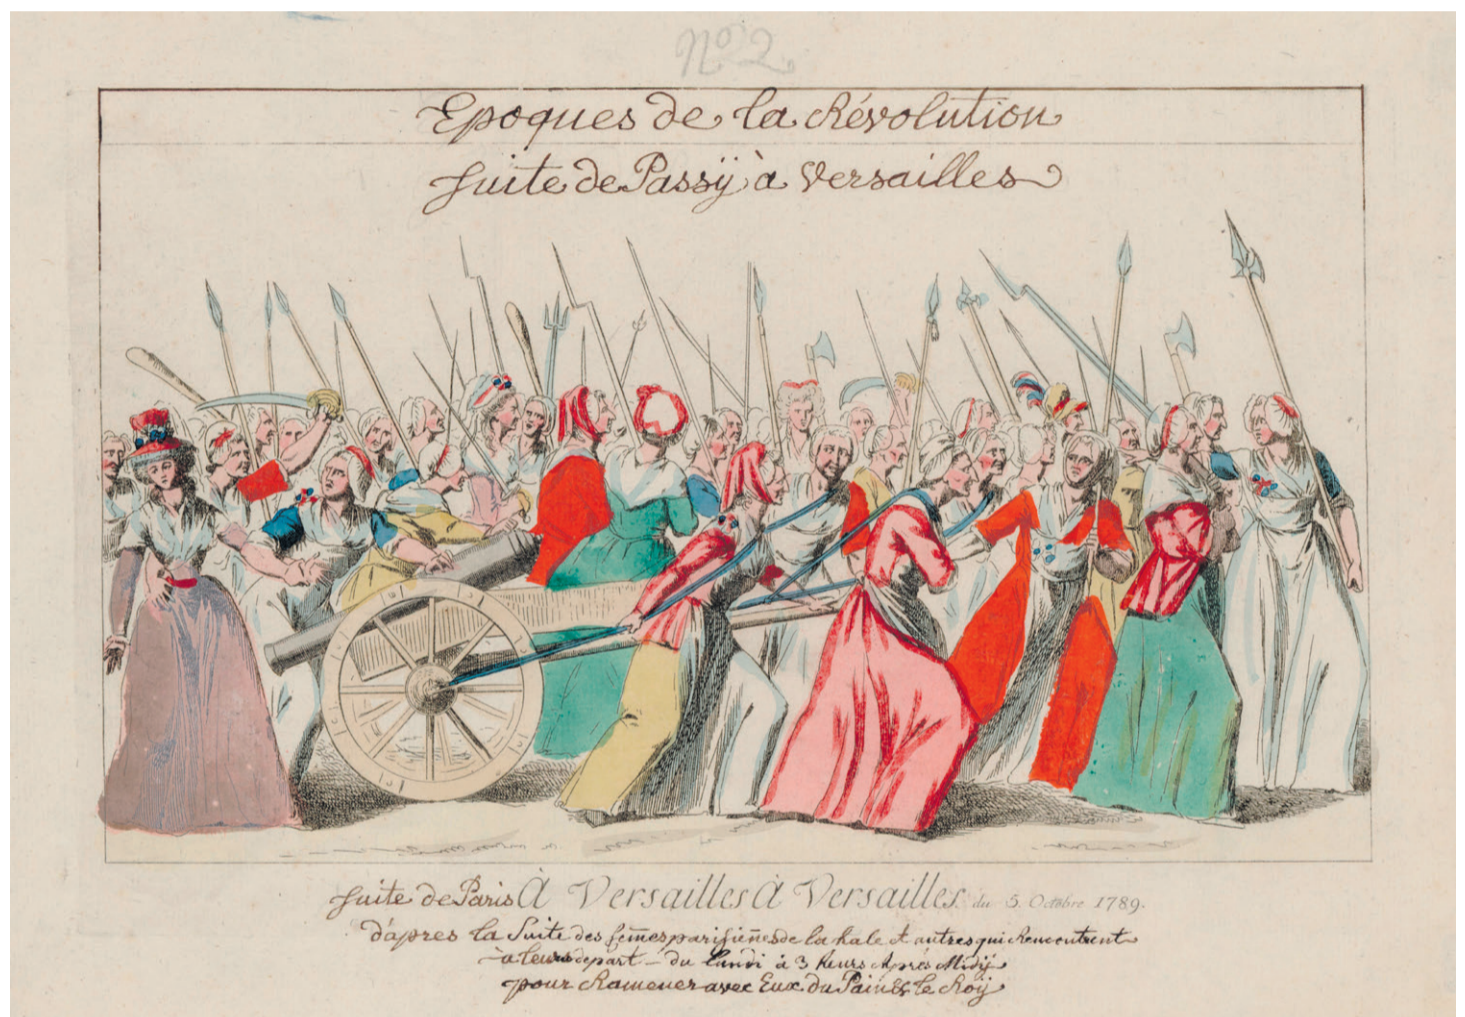 No 2
Epoques de la Révolution
suite de Passÿ à Versailles
suite de Paris À Versailles À Versailles du 5. Octobre 1789.
d'apres la Suite des fem̄es parisien̄es de la hale et autres qui Rencontrent
a leurs depart - du lundi à 3 heurs Aprés Midÿ
pour Ramener avec Eux du Pain & le Roÿ